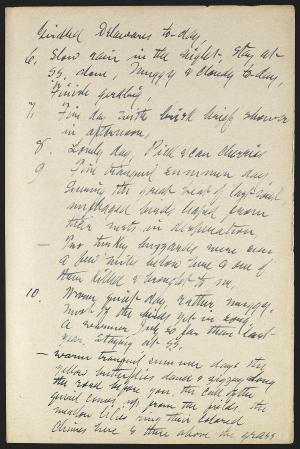 Girdled Delawares to-day,
6, Slow rain in the night, stay at
55, done, Muggy & cloudy to-day,
Finish girdling
7, Fine day with brisk brief shower
in afternoon,
8. Lovely day, Pick & can cherries
9 Fine tranquil summer day,
During the great heat of last
birds leaped from
their nests in desperation
— Two turkey buzzards were seen
a few miles below here & one of
them killed & brought to me,
10. Warm, quiet day, rather muggy,
Most of the birds yet in song
A warmer July so far than last
year. Staying at 55.
— warm tranquil summer days the
yellow butterflies dance & zigzag along
the road before you, the call of the
quail comes up from the fields, the
meadow lilies ring their colored
chimes here & there above the grass